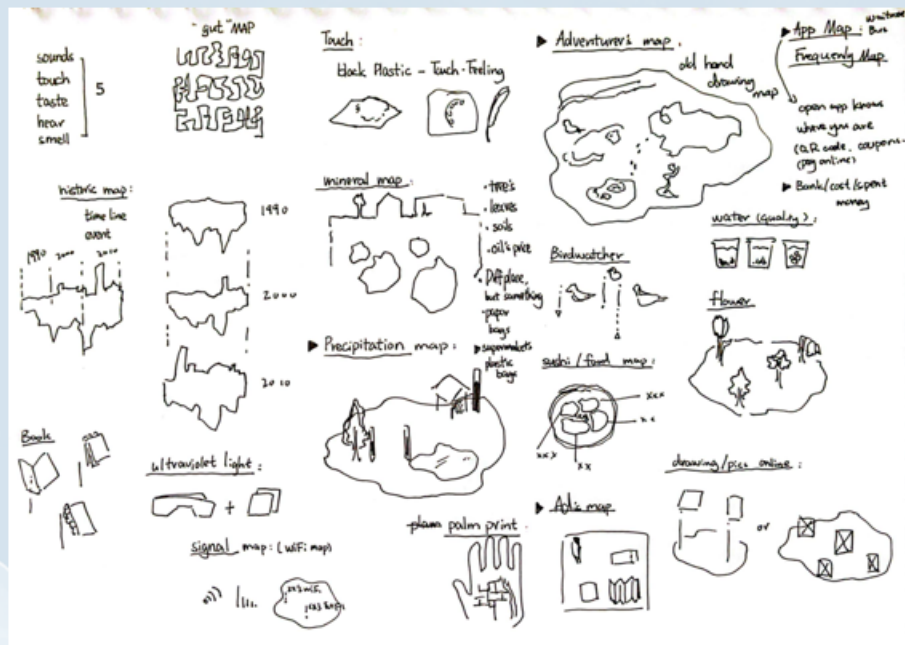 sounds
touch
taste
hear
smell
5
"gut" MAP
Touch:
black Plastic - Touch-Feeling
▶ Adventurer's map.
old hand
drawing
map
▶ App Map:
Frequently Map
open app knows
where you are
(QR code, coupons.
pay online)
▶ Bank/cost/spent
money
historic map:
time line
event
1990
2000
2010
1990
2000
2010
mineral map:
• tree's
• leaves
• soils
• oil's price
• Diff place,
but something
• paper
bags
▶ supermarkets
plastic
bags
Birdwatcher
water (quality):
flower
▶ Precipitation map:
sushi/food map:
xxx
xx
xxx
xx
Book
ultraviolet light:
+
signal map: (wiFi map)
palm print
▶ Adi's map
drawing/pics online:
or